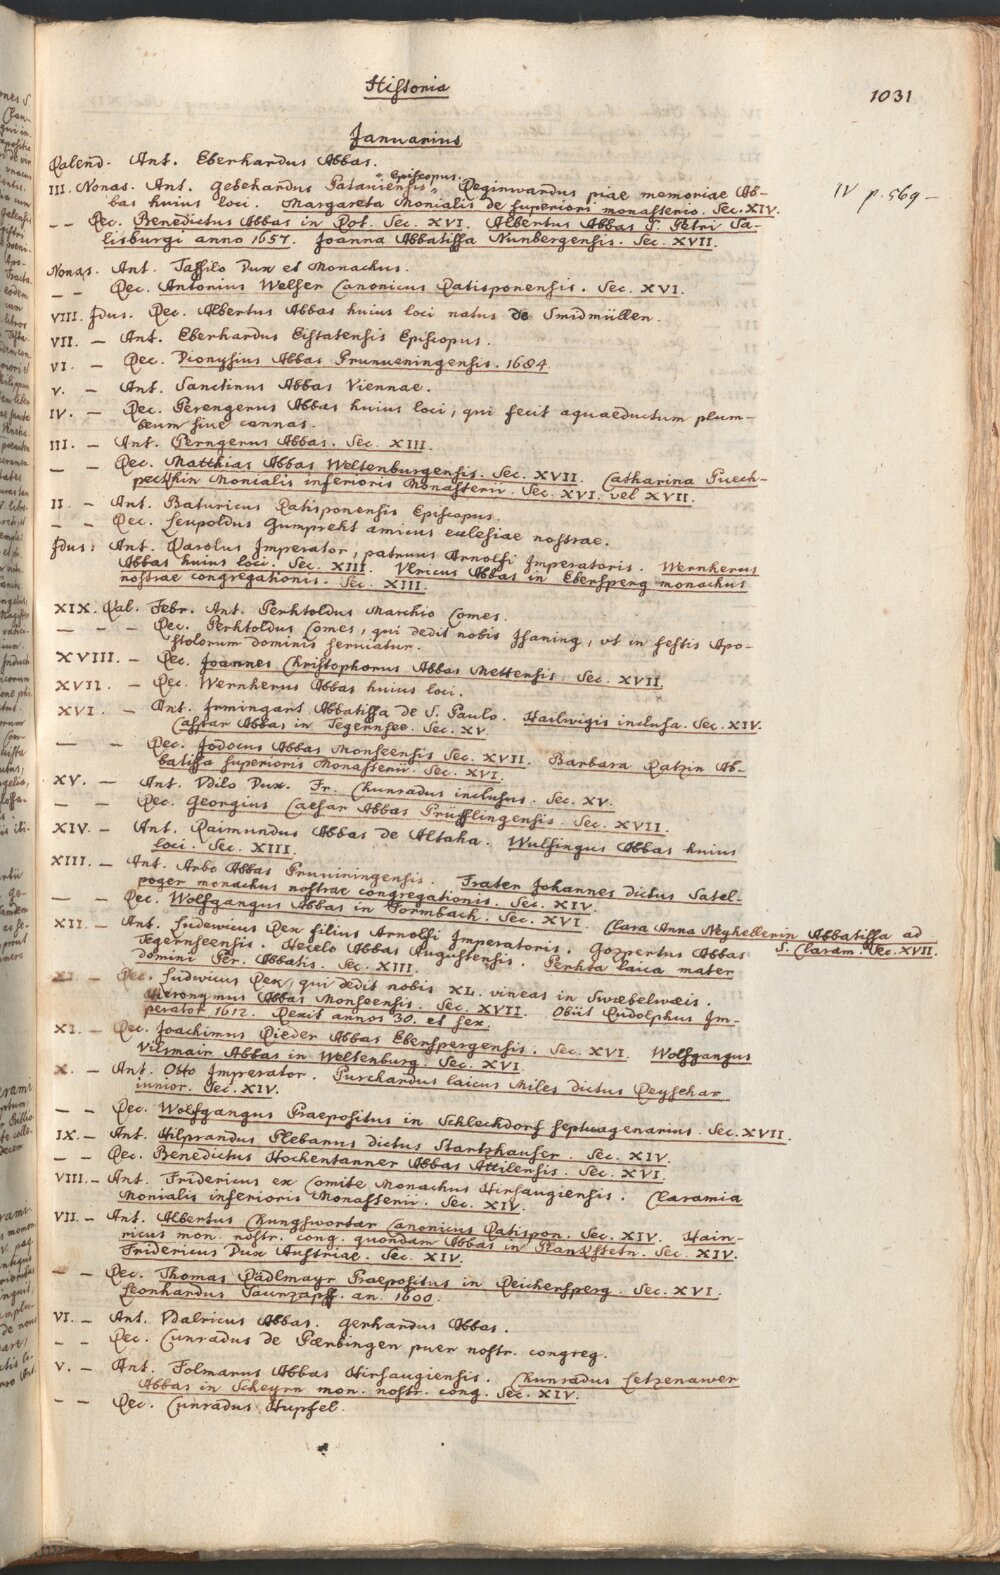 Historia
1031
Januarius
Kalend. Ant. Eberhardus Abbas.
III. Nonas. Ant. Gebehardus Pataviensis " Episcopus. " Reginwardus piae memoriae Ab-
bas huius loci. Margareta Monialis de superiori monasterio. Sec. XIV.
IV p. 569 –
– – Rec. Benedictus Abbas in Rot. Sec. XVI. Albertus Abbas S. Petri Sa-
lisburgi anno 1657. Joanna Abbatissa Nunbergensis. Sec. XVII.
Nonas. Ant. Tassilo Dux et Monachus.
– – Rec. Antonius Welser Canonicus Ratisponensis. Sec. XVI.
VIII. Jdus. Rec. Albertus Abbas huius loci natus de Smidmüllen.
VII. – Ant. Eberhardus Eistatensis Episcopus.
VI. – Rec. Dionysius Abbas Prunueningensis. 1684
V. – Ant. Sanctinus Abbas Viennae.
IV. – Rec. Perengerus Abbas huius loci, qui fecit aquaeductum plum-
beum sive cannas.
III. – Ant. Perngerus Abbas. Sec. XIII.
– – Rec. Matthias Abbas Weltenburgensis. Sec. XVII. Catharina Puech-
peckhin Monialis inferioris Monasterii. Sec. XVI. vel XVII.
II. – Ant. Baturicus Ratisponensis Episcopus.
– – Rec. Leupoldus Gumpreht amicus ecclesiae nostrae.
Jdus: Ant. Karolus Imperator, patruus Arnolfi Imperatoris. Wernherus
Abbas huius loci. Sec. XIII. Vlricus Abbas in Ebersperg monachus
nostrae congregationis. Sec. XIII.
XIX. Kal. Febr. Ant. Perhtoldus Marchio Comes.
– – – Rec. Perhtoldus Comes, qui dedit nobis Jsaning, vt in festis Apo-
stolorum dominis serviatur.
XVIII. – Rec. Joannes Christophorus Abbas Mettensis. Sec. XVII.
XVII. – Rec. Wernherus Abbas huius loci.
XVI. – Ant. Irmingart Abbatissa de S. Paulo. Hailwigis inclusa. Sec. XIV.
Caspar Abbas in Tegernsee. Sec. XV.
– – Rec. Jodocus Abbas Monseensis Sec. XVII. Barbara Ratzin Ab-
batissa superioris Monasterii. Sec. XVI.
XV. – Ant. Vdilo Dux. Fr. Chunradus inclusus. Sec. XV.
– – Rec. Georgius Caesar Abbas Prüfflingensis. Sec. XVII.
XIV. – Ant. Raimundus Abbas de Altaha. Wulfingus Abbas huius
loci. Sec. XIII.
XIII. – Ant. Arbo Abbas Pruviningensis. Frater Johannes dictus Satel-
poger monachus nostrae congregationis. Sec. XIV.
– – Rec. Wolfgangus Abbas in Formbach. Sec. XVI. Clara Anna Neyhellerin Abbatissa ad
S. Claram. Sec. XVII.
XII. – Ant. Ludewicus Rex filius Arnolfi Imperatoris. Gozpertus Abbas
Tegernseensis. Hecelo Abbas Augustensis. Perhta laica mater
domini Per. Abbatis. Sec. XIII.
XI. – Rec. Ludwicus Rex, qui dedit nobis XL. vineas in Swæbelwæis.
Hieronymus Abbas Monseensis. Sec. XVII. Obiit Rudolphus Im-
perator 1612. Rexit annos 30. et sex.
XI. – Rec. Joachimus Rieder Abbas Eberspergensis. Sec. XVI. Wolfgangus
Vilsmair Abbas in Weltenburg. Sec. XVI.
X. – Ant. Otto Imperator. Purchardus laicus Miles dictus Reyschar
iunior. Sec. XIV.
– – Rec. Wolfgangus Praepositus in Schlechdorf septuagenarius. Sec. XVII.
IX. – Ant. Hilprandus Plebanus dictus Startzhauser. Sec. XIV.
– – Rec. Benedictus Hochentanner Abbas Attilensis. Sec. XVI.
VIII. – Ant. Fridericus ex Comite Monachus Hirsaugiensis. Claramia
Monialis inferioris Monasterii. Sec. XIV.
VII. – Ant. Albertus Chungswortar Canonicus Ratispon. Sec. XIV. Hain-
ricus mon. nostr. cong. quondam Abbas in Planckstetn. Sec. XIV.
Fridericus Dux Austriae. Sec. XIV.
– – Rec. Thomas Rädlmayr Praepositus in Reichersperg. Sec. XVI.
Leonhardus Taunzapff. an. 1600.
VI. – Ant. Vdalricus Abbas. Gerhardus Abbas.
– – Rec. Cunradus de Pærbingen puer nostr. congreg.
V. – Ant. Folmarus Abbas Hirsaugiensis. Chunradus Letzenawer
Abbas in Scheyrn mon. nostr. cong. Sec. XIV.
– – Rec. Cunradus Hupfel.